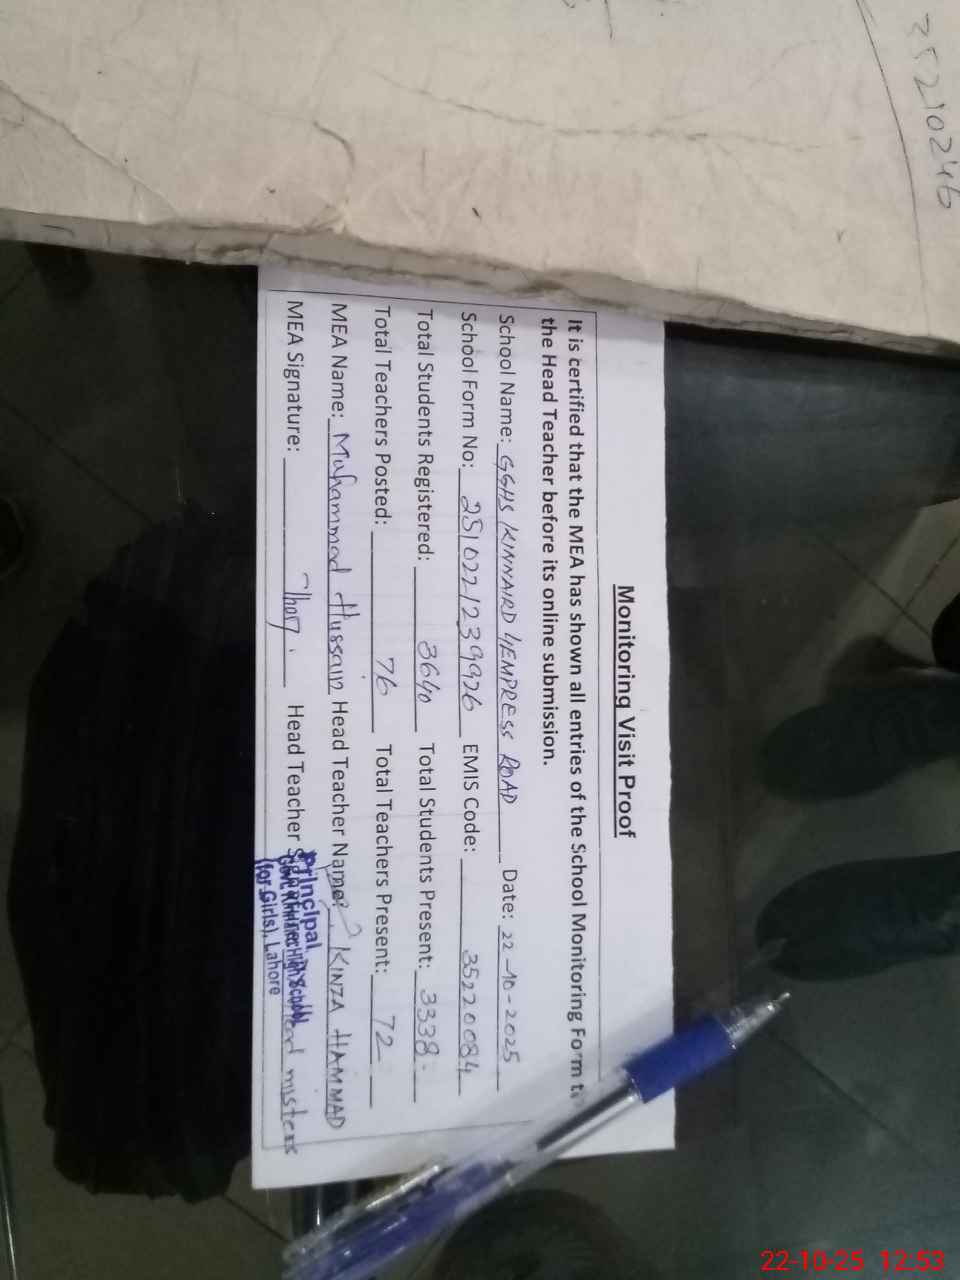 35210246
Monitoring Visit Proof
It is certified that the MEA has shown all entries of the School Monitoring Form to
the Head Teacher before its online submission.
School Name: GGHS KINNAIRD 4EMPRESS ROAD Date: 22-10-2025
School Form No: 2510221239926 EMIS Code: 35220084
Total Students Registered: 3640 Total Students Present: 3338
Total Teachers Posted: 76 Total Teachers Present: 72
MEA Name: Muhammad Hussain Head Teacher Name: KINZA HAMMAD
MEA Signature: Head Teacher
Principal
High School
(for Girls), Lahore
22-10-25 12:53